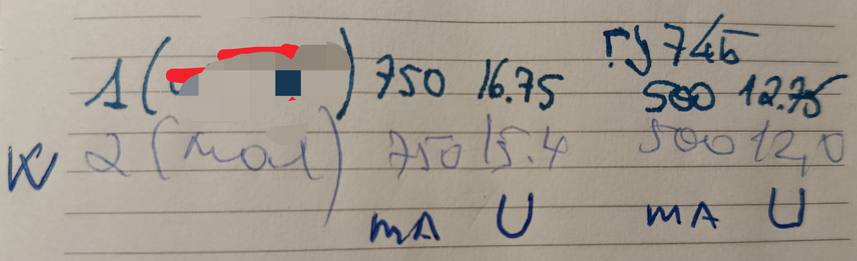 гу 74б
1 ( ) 750 16.75 500 12.75
K 2 (мой) 750 15.4 500 12,0
mA U mA U